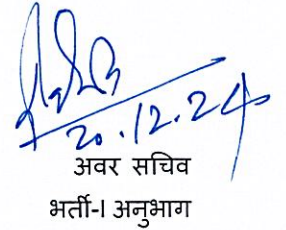 20.12.24
अवर सचिव
भर्ती-I अनुभाग